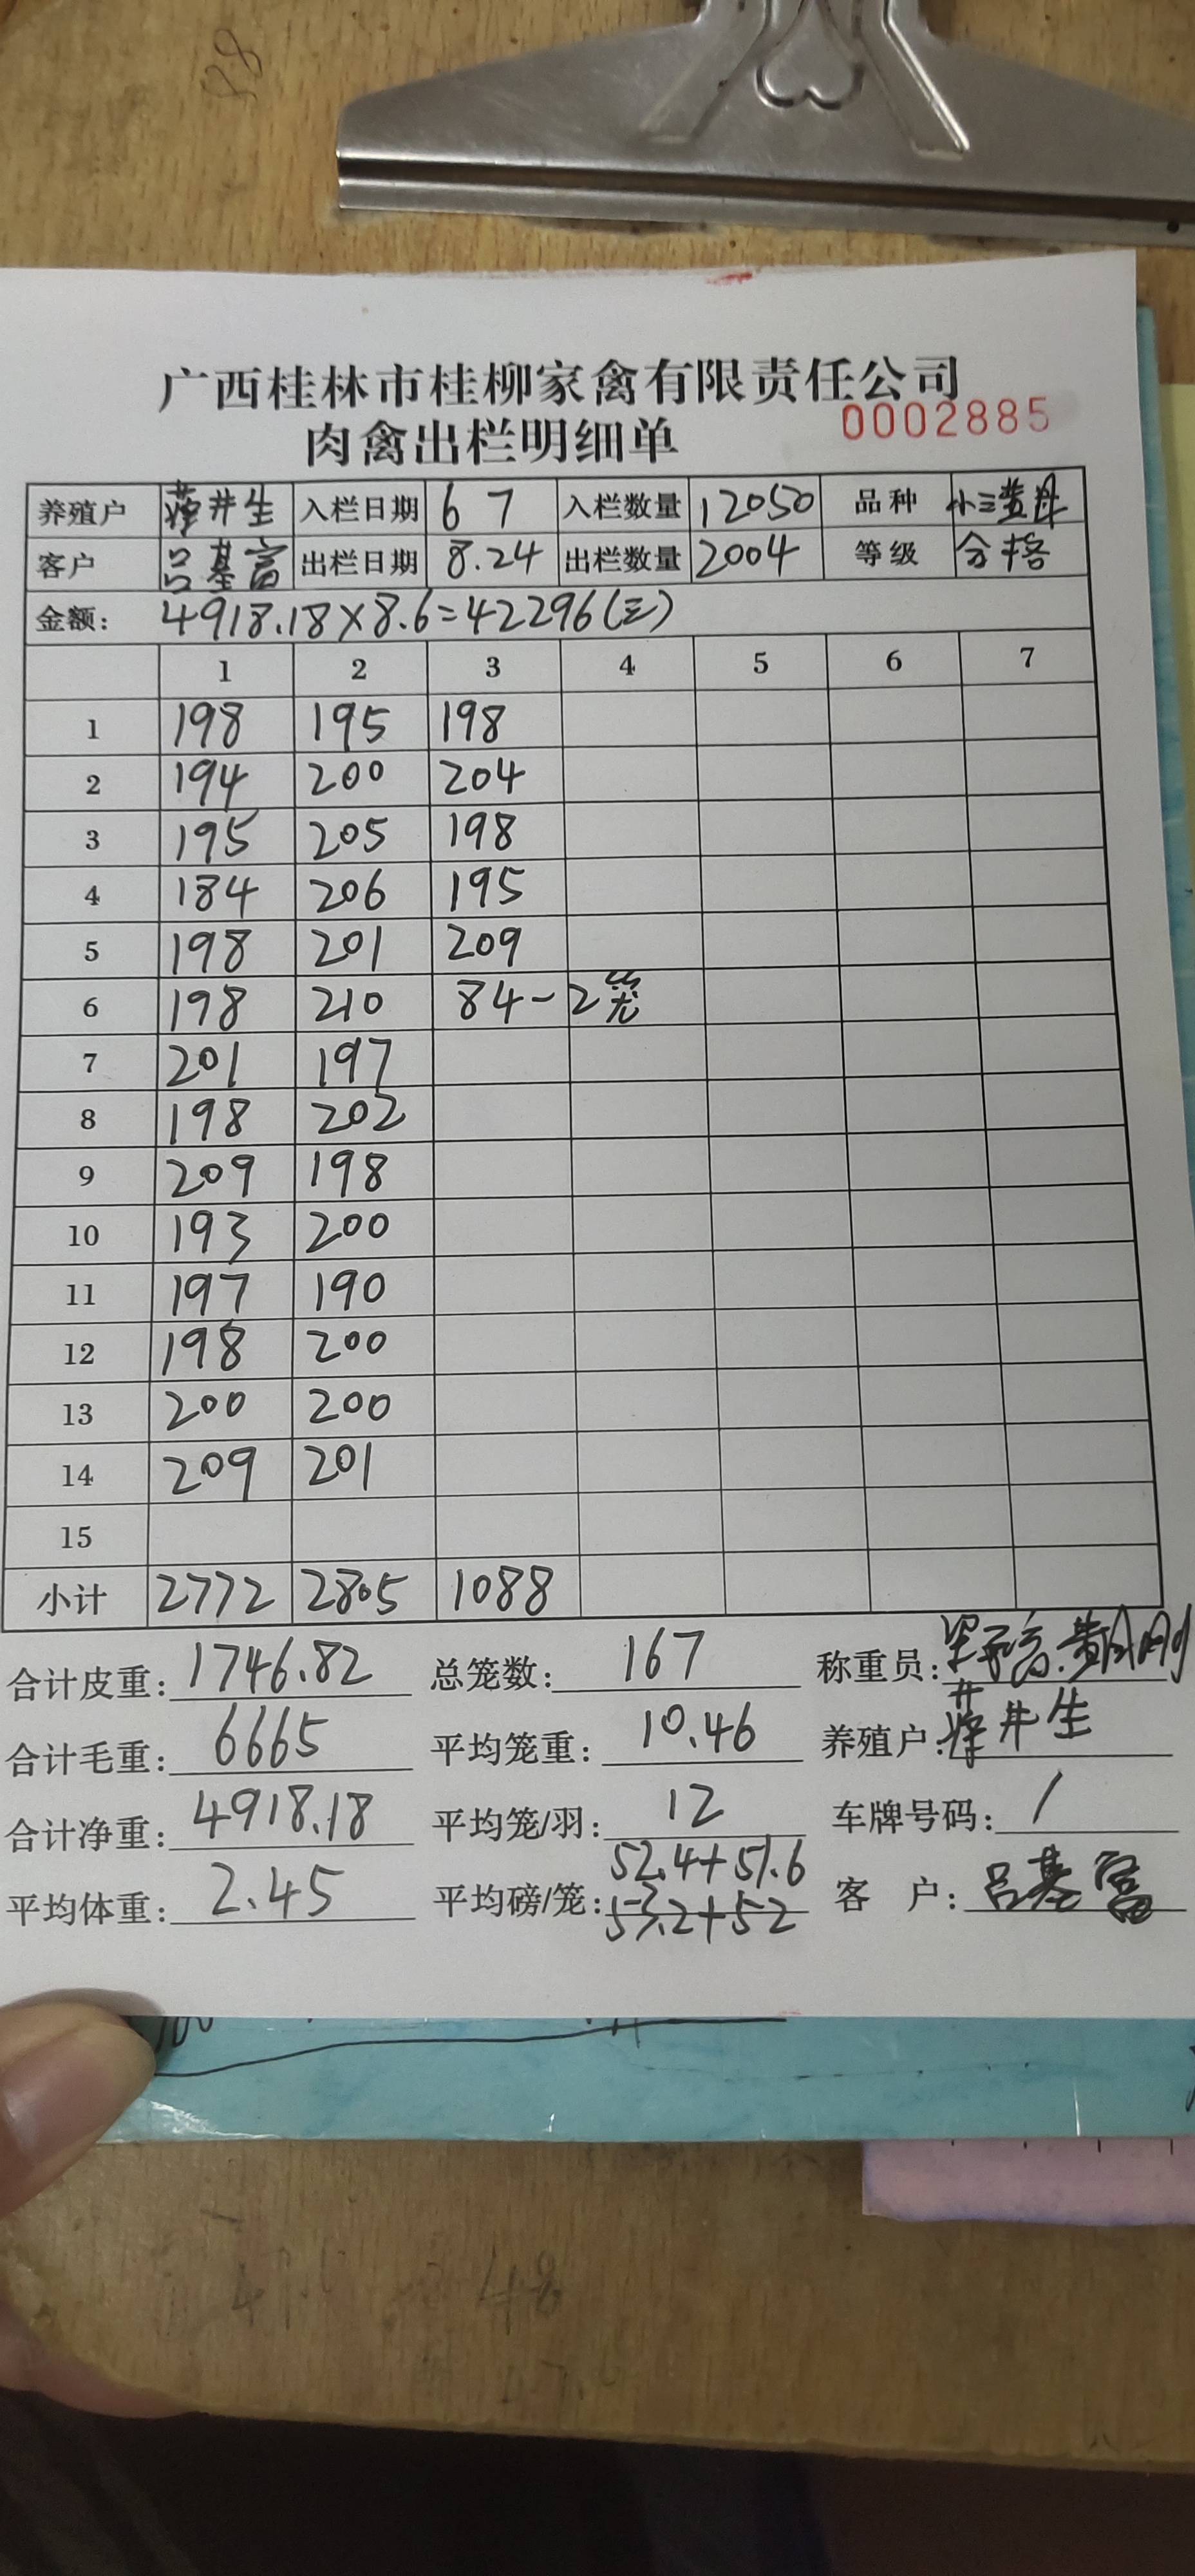 广西桂林市桂柳家禽有限责任公司
肉禽出栏明细单 0002885
养殖户 蒋井生 入栏日期 6 7 入栏数量 12050 品种 小三黄
客户 吕基富 出栏日期 8.24 出栏数量 2004 等级 合格
金额: 4918.18×8.6=42296(元)
1 2 3 4 5 6 7
1 198 195 198
2 194 200 204
3 195 205 198
4 184 206 195
5 198 201 209
6 198 210 84-2笼
7 201 197
8 198 202
9 209 198
10 193 200
11 197 190
12 198 200
13 200 200
14 209 201
15
小计 2772 2805 1088
合计皮重: 1746.82 总笼数: 167 称重员:
合计毛重: 6665 平均笼重: 10.46 养殖户: 蒋井生
合计净重: 4918.18 平均笼/羽: 12 车牌号码: /
52.4+51.6
平均体重: 2.45 平均磅/笼: 53.2+52 客 户: 吕基富